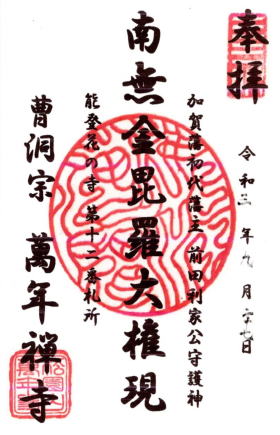 奉拝
令和三年九月二十七日
加賀藩初代藩主 前田利家公守護神
南無金毘羅大権現
能登花の寺 第十二番札所
曹洞宗 萬年禅寺